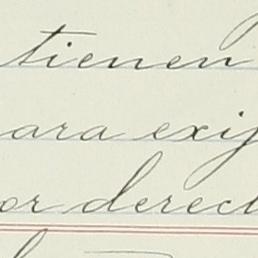 tienen
ara exij
or derect